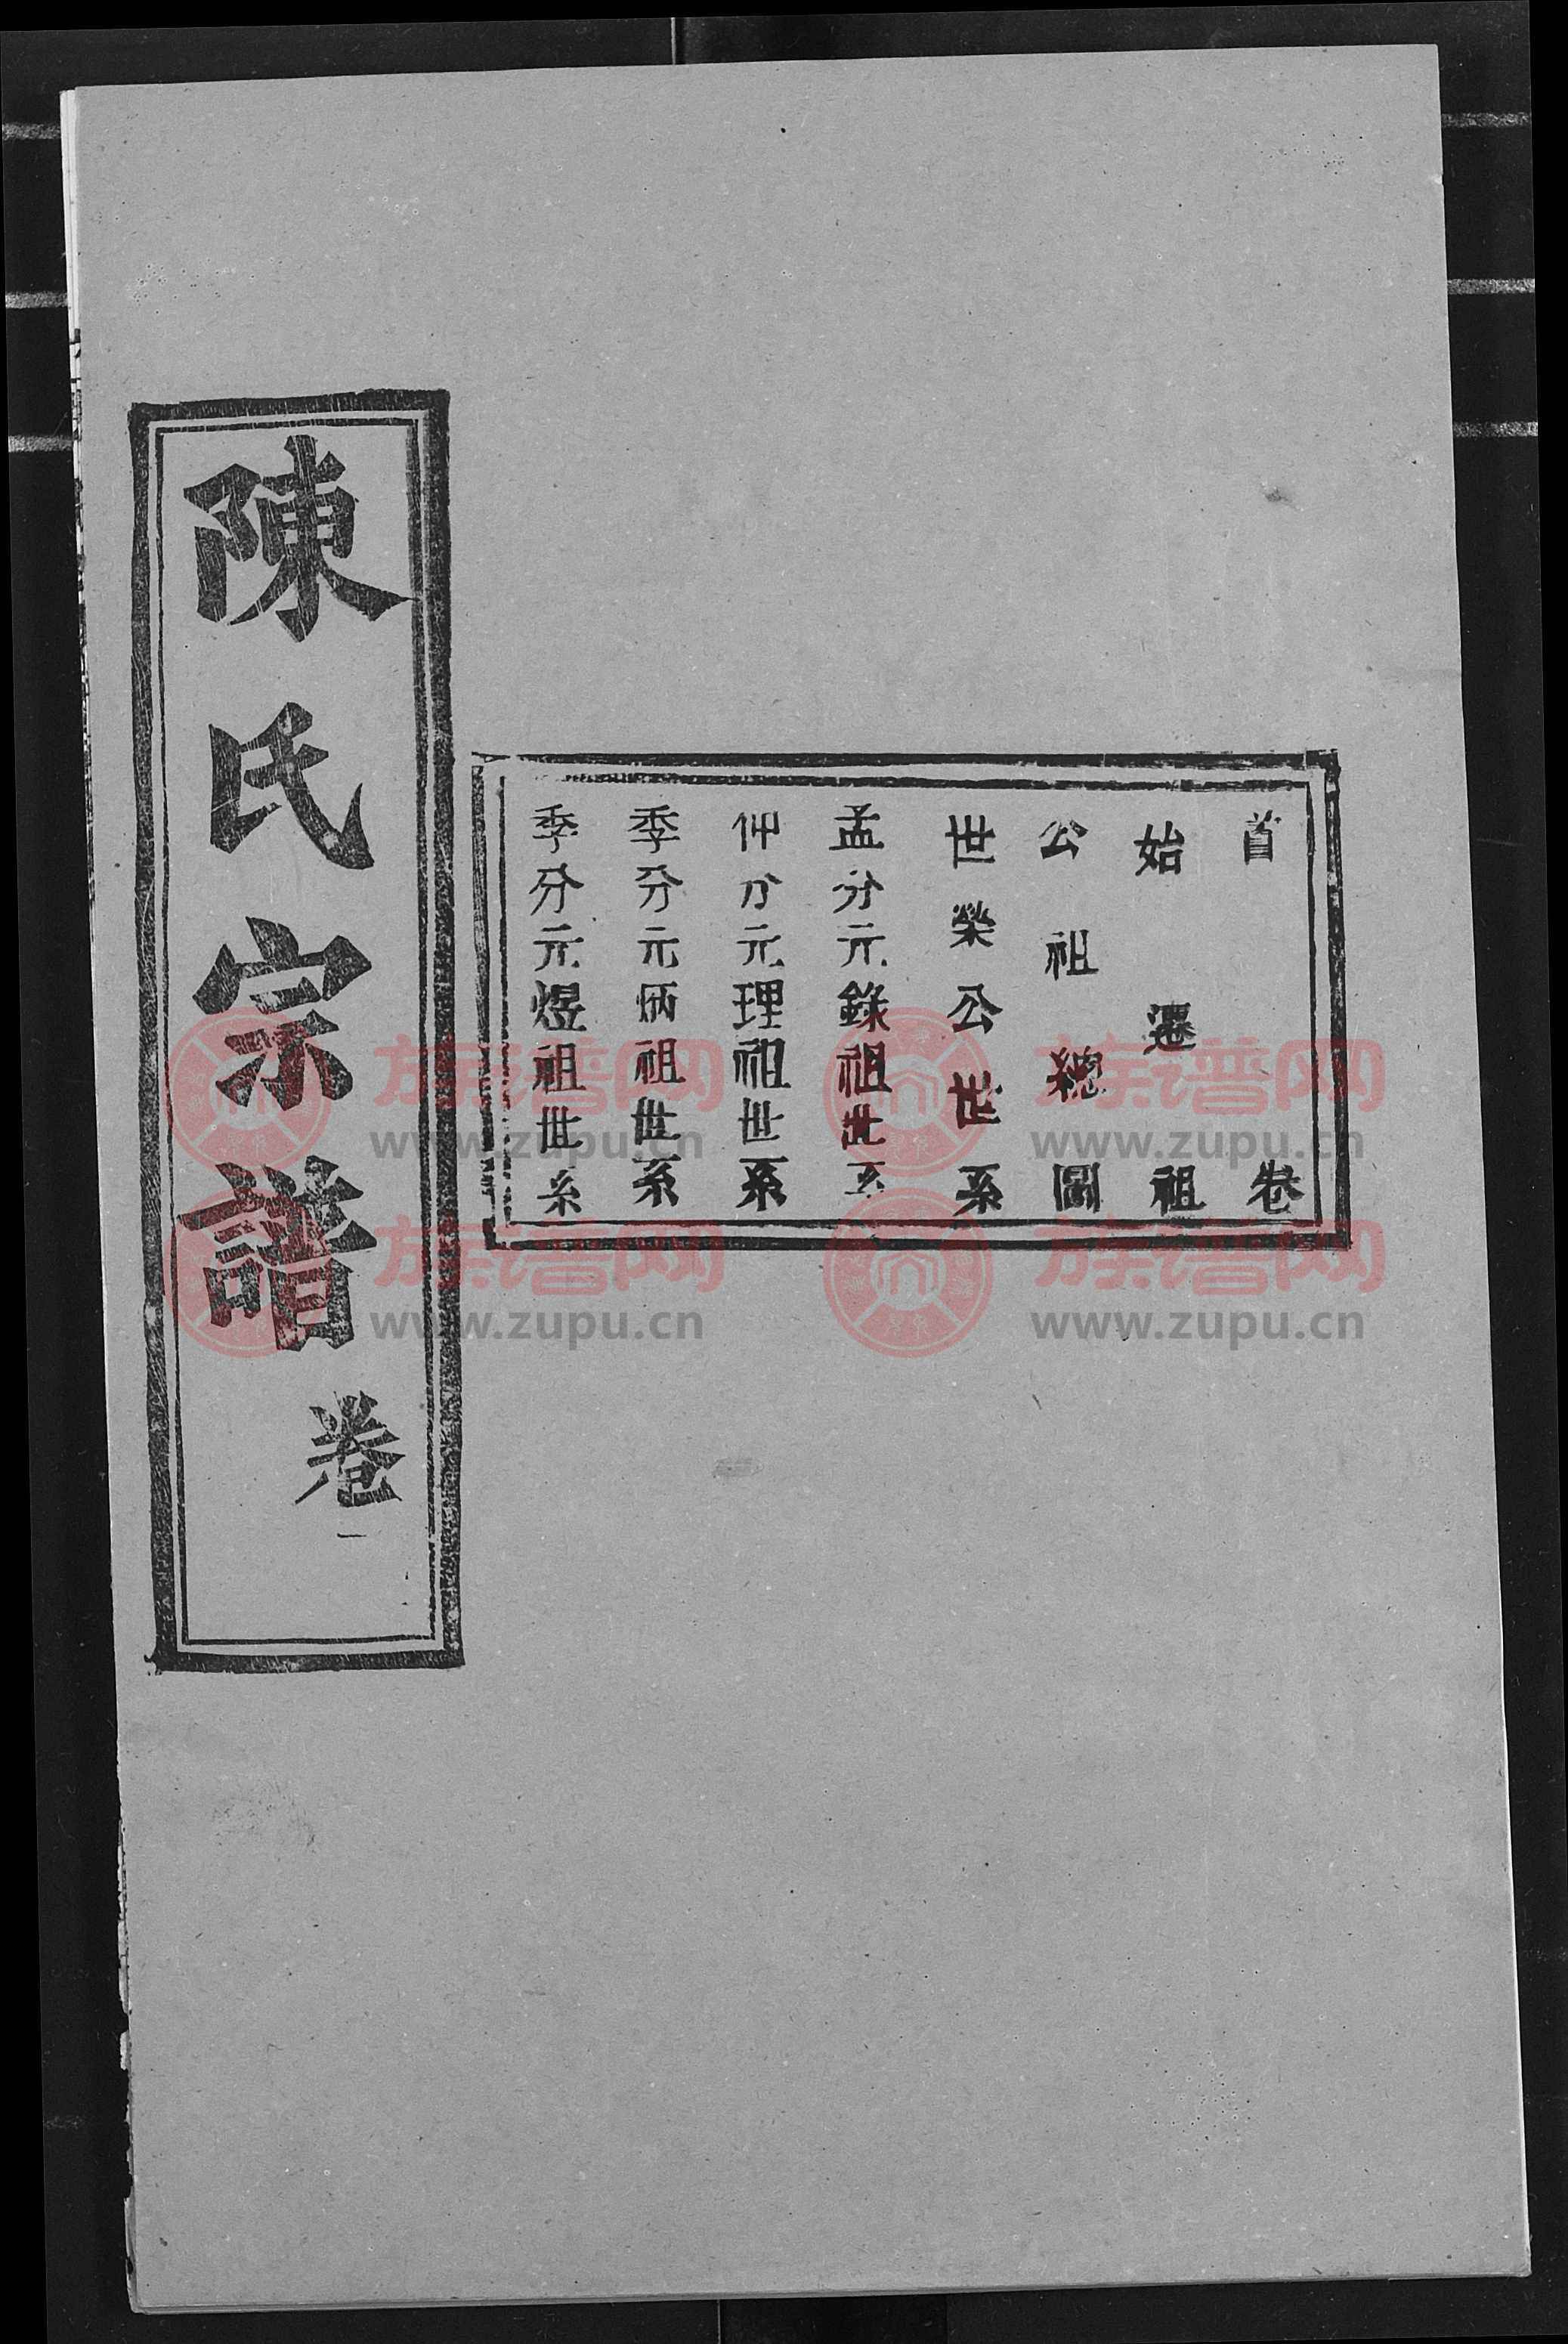 首卷
始遷祖
公祖總圖
世榮公世系
孟分元錄祖世系
仲分元理祖世系
季分元炳祖世系
季分元煜祖世系
陳氏宗譜
卷一
族谱网 族谱网
www.zupu.cn www.zupu.cn
族谱网 族谱网
www.zupu.cn www.zupu.cn